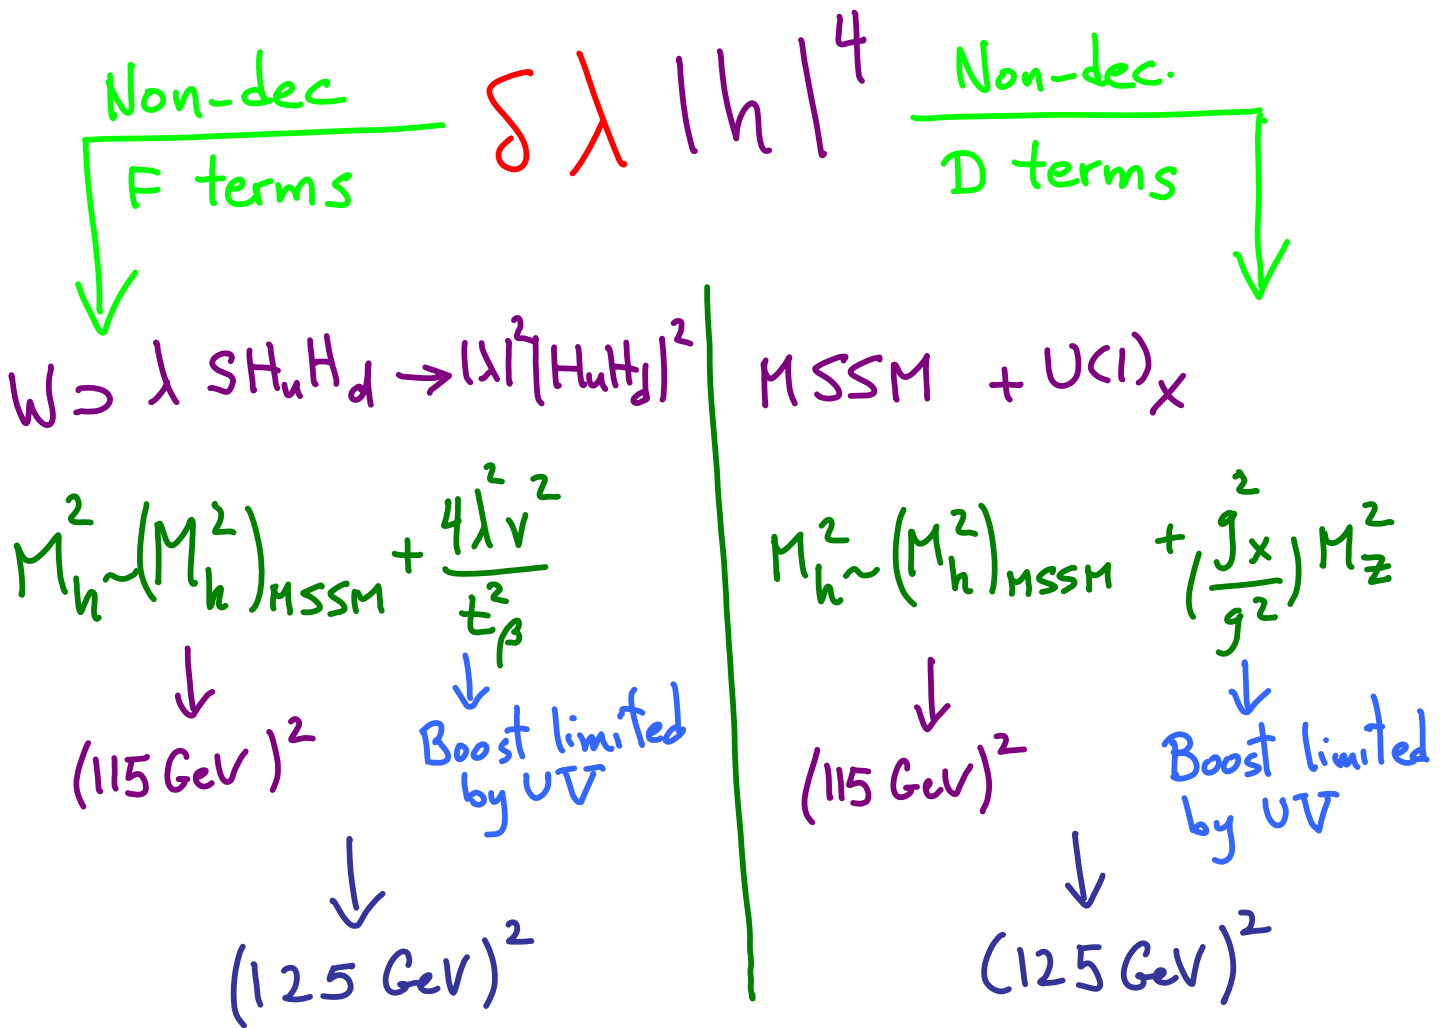 δλ |h|⁴
Non-dec
F terms
W ⊃ λ S HᵤH_d → |λ|²|HᵤH_d|²
M_h² ~ (M_h²)_MSSM + 4λ²v² / t_β²
(115 GeV)²
Boost limited
by UV
(125 GeV)²
Non-dec.
D terms
MSSM + U(1)_X
M_h² ~ (M_h²)_MSSM + (g_X² / g²) M_Z²
(115 GeV)²
Boost limited
by UV
(125 GeV)²